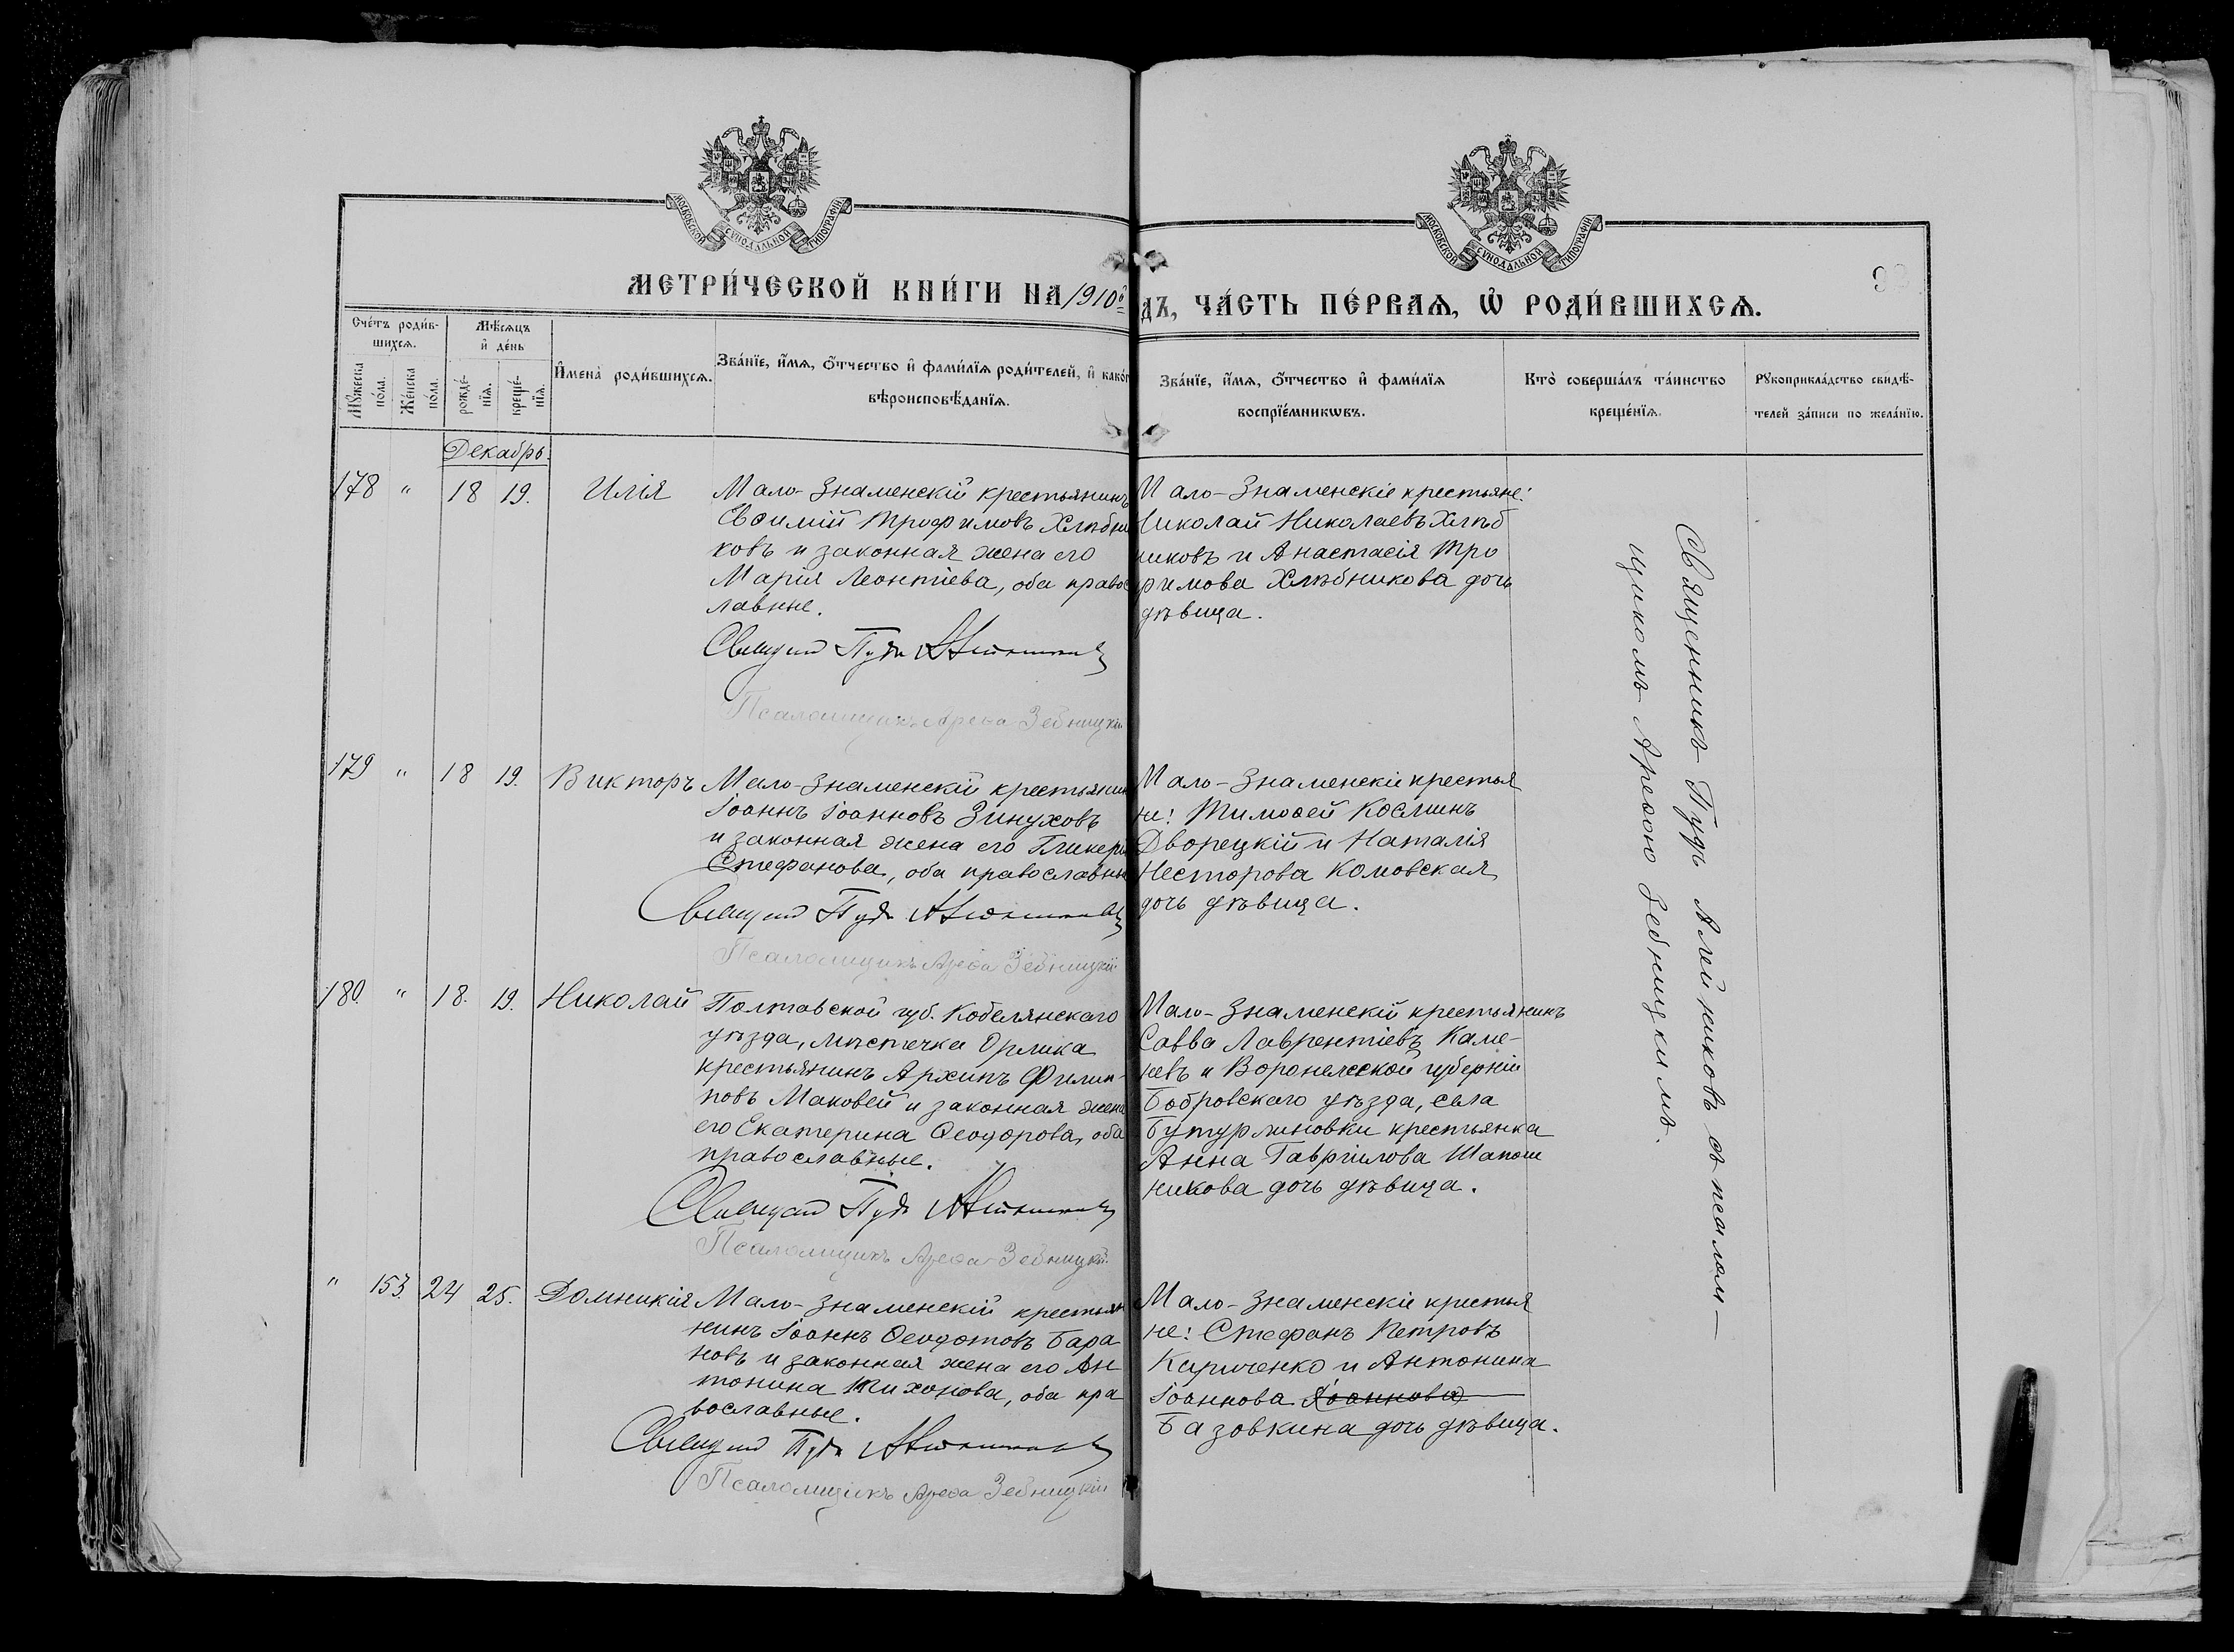 МОСКОВСКОЙ СѴНОДАЛЬНОЙ ТИПОГРАФІИ
МОСКОВСКОЙ СѴНОДАЛЬНОЙ ТИПОГРАФІИ
МЕТРИ́ЧЕСКОЙ КНИ́ГИ НА 1910й
ДЪ, ЧА́СТЬ ПЕ́РВАѦ, Ѡ҆ РОДИ́ВШИХСѦ.
Сче́тъ роди́в-
шихсѧ.
Мꙋ́жеска по́ла.
Же́нска по́ла.
Мѣ́сѧцъ
и҆ де́нь
рожде́-
нїѧ.
креще́-
нїѧ.
И҆мена̀ роди́вшихсѧ.
Зва́нїе, и҆́мѧ, ѻ҆́тчество и҆ фами́лїѧ роди́телей, и҆ како́г
вѣроисповѣ́данїѧ.
Зва́нїе, и҆́мѧ, ѻ҆́тчество и҆ фами́лїѧ
воспрїе́мникѡвъ.
Кто̀ соверша́лъ та́инство
креще́нїѧ.
Рꙋкоприкла́дство свидѣ́-
телей за́писи по жела́нїю.
Декабрь.
178 " 18 19. Илія
Мало-Знаменскій крестьянинъ
Евѳимій Трофимовъ Хлѣбни
ковъ и законная жена его
Марія Леонтіева, оба правос
лавные.
Псаломщикъ Ареѳа Зебницкій
Мало-Знаменскіе крестьяне:
Николай Николаевъ Хлѣб
никовъ и Анастасія Тро
фимова Хлѣбникова дочь
дѣвица.
179 " 18 19. Викторъ
Мало-Знаменскій крестьянин
Іоаннъ Іоанновъ Зинуховъ
и законная жена его Гликері
Стефанова, оба православны
Псаломщикъ Ареѳа Зебницкій
Мало-Знаменскіе крестья
не: Тимоѳей Косминъ
Дворецкій и Наталія
Несторова Комовская
дочь дѣвица.
180. " 18. 19. Николай
Полтавской губ. Кобелянскаго
уѣзда, мѣстечка Орлика
крестьянинъ Архипъ Филип-
повъ Маковей и законная жена
его Екатерина Ѳеодорова, оба
православные.
Псаломщикъ Ареѳа Зебницкій
Мало-Знаменскій крестьянинъ
Савва Лаврентіевъ Каме-
невъ и Воронежской губерніи
Бобровскаго уѣзда, села
Бутурлиновки крестьянка
Анна Гавріилова Шапош
никова дочь дѣвица.
" 153. 24 25. Домникія
Мало-Знаменскій крестьян
нинъ Іоаннъ Ѳеодотовъ Бара
новъ и законная жена его Ан
тонина Тихонова, оба пра
вославные.
Псаломщикъ Ареѳа Зебницкій
Мало-Знаменскіе крестья
не: Стефанъ Петровъ
Кириченко и Антонина
Іоаннова Іоаннова
Базовкина дочь дѣвица.
Священникъ Пудъ Алейниковъ съ псалом-
щикомъ Ареѳою Зебницкимъ.